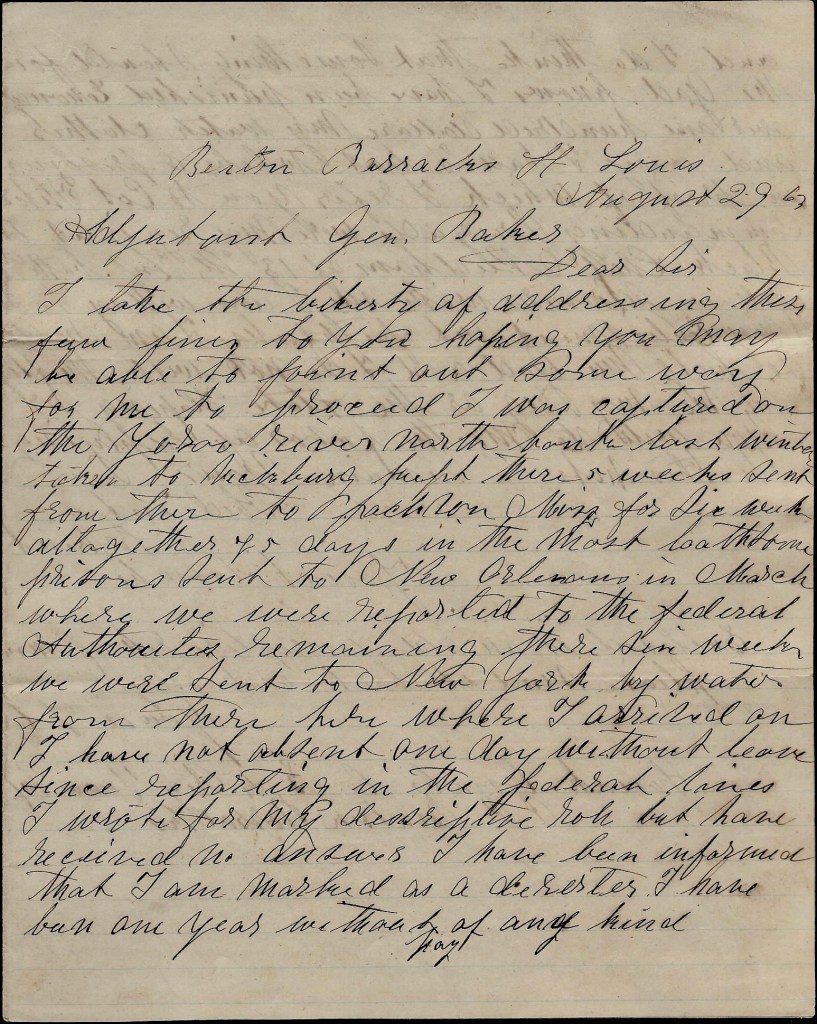 Benton Barracks St Louis
August 29 63
Adjutant Gen. Baker
Dear Sir
I take the liberty of addressing these
few lines to you hoping you may
be able to point out some way
for me to proceed I was captured on
the Yazoo river north bank last winter
taken to Vicksburg kept there 5 weeks sent
from there to Jackson Miss for six week
altogether 75 days in the most loathsome
prisons sent to New Orleans in March
where we were reported to the federal
Authorites remaining there six weeks
we were sent to New York by water
from there here where I arrived on
I have not absent one day without leave
since reporting in the federal lines
I wrote for my descriptive roll but have
received no answer I have been informed
that I am marked as a deserter I have
been one year without pay of any kind